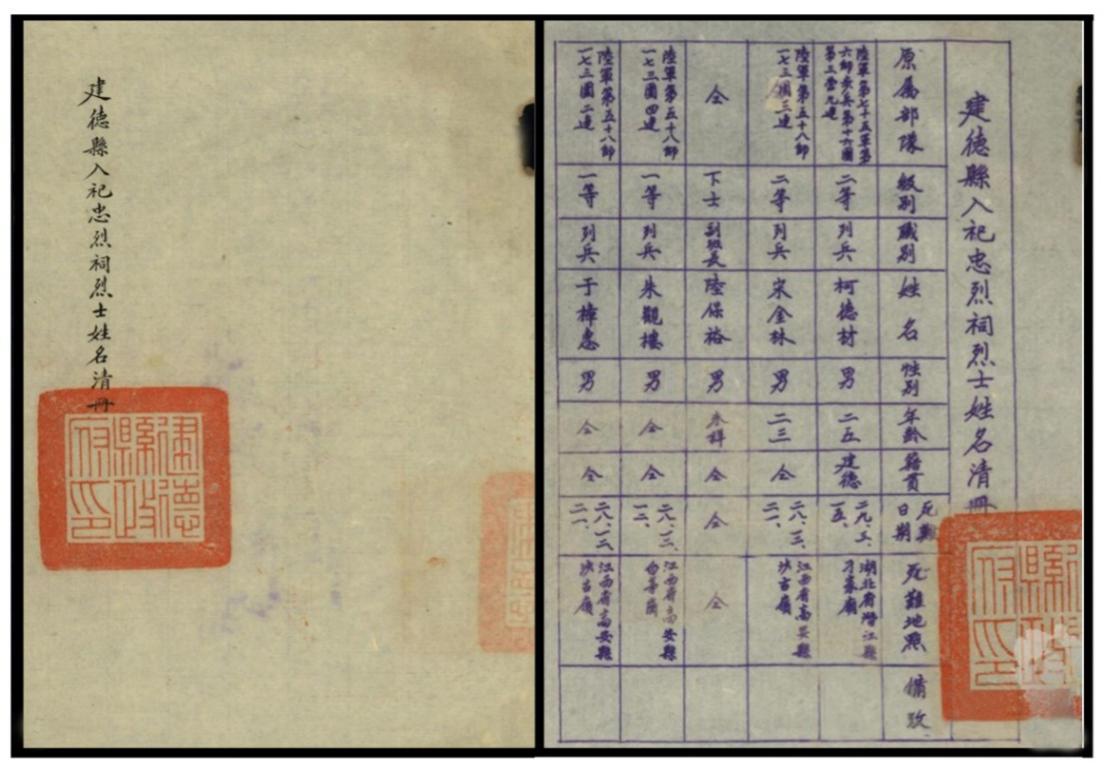 建德縣入祀忠烈祠烈士姓名清冊
建德縣政府印
建德縣入祀忠烈祠烈士姓名清冊
原属部隊 級別 職別 姓名 性別 年齡 籍貫 死難日期 死難地點 備攷
陸軍第七十五軍第六師步兵第十六團第三营九連 二等 列兵 柯德材 男 二五 建德 二九、五、一五、 湖北省潛江縣刁家廟
陸軍第五十八師一七三團三連 二等 列兵 宋金林 男 二三 仝 二八、一二、二一、 江西省高安縣沙古嶺
仝 下士 副班長 陸保裕 男 未詳 仝 仝 仝
陸軍第五十八師一七三團四連 一等 列兵 朱觀樓 男 仝 仝 二八、一二、一二、 江西省高安縣白茅嶺
陸軍第五十八師一七三團二連 一等 列兵 于樟惠 男 仝 仝 二八、一二、二一、 江西省高安縣沙古嶺